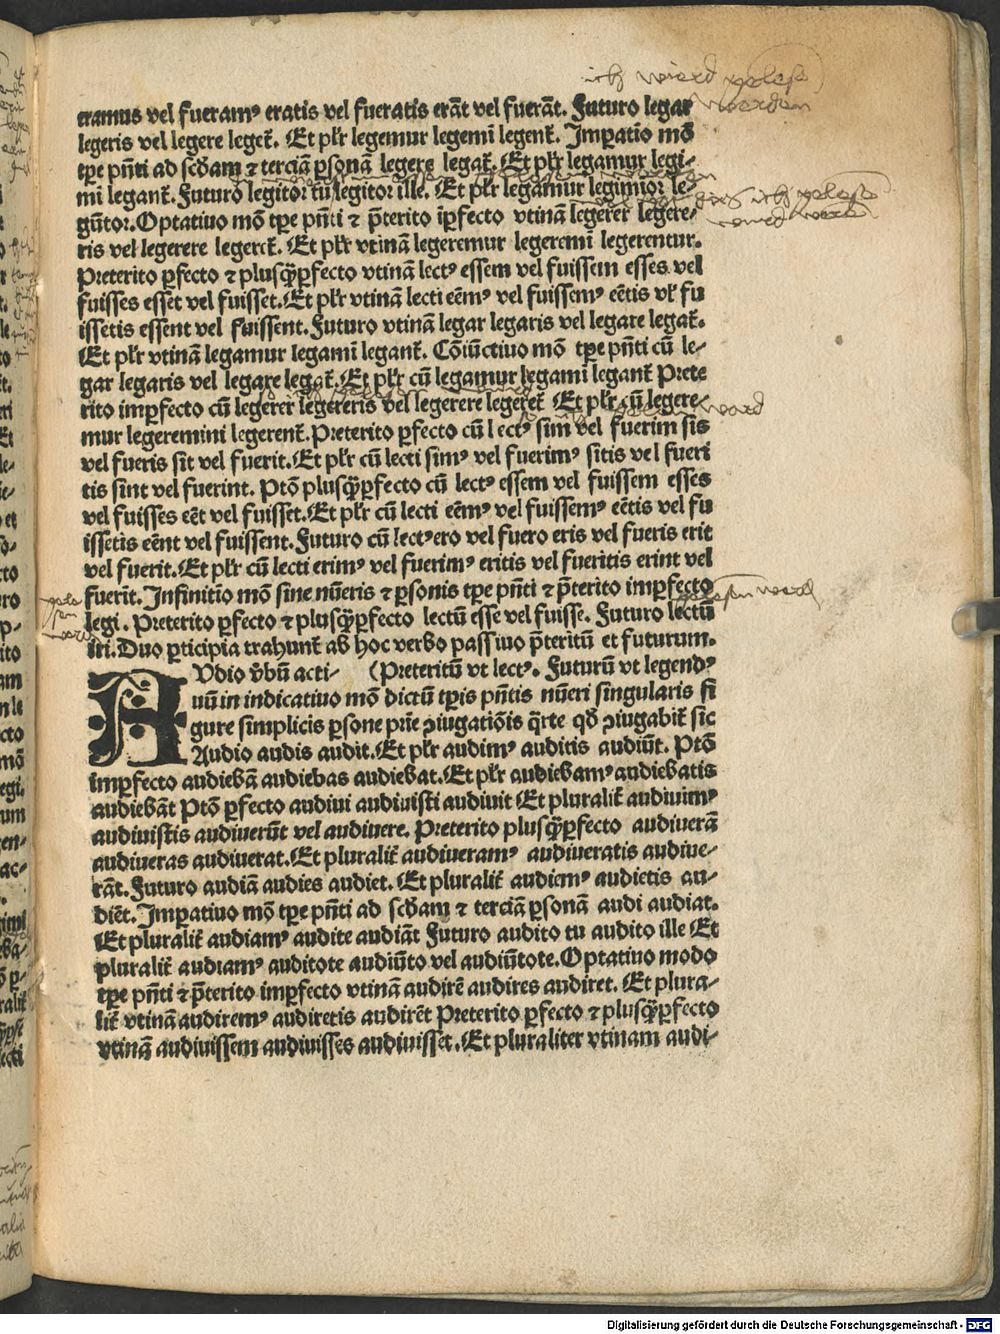 ich wierd geleß
werden
eramus vel fueramꝰ eratis vel fueratis erāt vel fuerāt. Futuro legar
legeris vel legere leget̄. Et pl̄r legemur legemī legent̄. Imꝑatīo mō
tꝑe pn̄ti ad scḋam ⁊ terciā ꝑsonā legere legat̄. Et pl̄r legamur legi-
mī legant̄. Futuro legitor tu legitor ille. Et pl̄r legamur legimior le-
gūtor. Optatiuo mō tꝑe pn̄ti ⁊ p̄terito īꝑfecto vtinā legerer legere-
ris vel legerere legeret̄. Et pl̄r vtinā legeremur legeremī legerentur.
Preterito ꝑfecto ⁊ plusq̄ꝑfecto vtinā lectꝰ essem vel fuissem esses vel
fuisses esset vel fuisset. Et pl̄r vtinā lecti eēmꝰ vel fuissemꝰ eētis vl̄ fu
issetis essent vel fuissent. Futuro vtinā legar legaris vel legare legat̄.
Et pl̄r vtinā legamur legamī legant̄. Cōiūctiuo mō tꝑe pn̄ti cū le-
gar legaris vel legare legat̄. Et pl̄r cū legamur legamī legant̄ Prete
rito imꝑfecto cū legerer legereris vel legerere legeret̄ Et pl̄r cū legere-
ward
mur legeremini legerent̄. Preterito ꝑfecto cū lectꝰ sim vel fuerim sis
vel fueris sit vel fuerit. Et pl̄r cū lecti simꝰ vel fuerimꝰ sitis vel fueri
tis sint vel fuerint. Ptō plusq̄ꝑfecto cū lectꝰ essem vel fuissem esses
vel fuisses eēt vel fuisset. Et pl̄r cū lecti eēmꝰ vel fuissemꝰ eētis vel fu
issetis eēnt vel fuissent. Futuro cū lectꝰ ero vel fuero eris vel fueris erit
vel fuerit. Et pl̄r cū lecti erimꝰ vel fuerimꝰ eritis vel fueritis erint vel
fuerīt. Infinitīo mō sine nūeris ⁊ ꝑsonis tꝑe pn̄ti ⁊ p̄terito imꝑfecto
legi. Preterito ꝑfecto ⁊ plusq̄ꝑfecto lectū esse vel fuisse. Futuro lectū
iri. Duo ꝑticipia trahunt̄ ab hoc verbo passiuo p̄teritū et futurum.
AVdio v̄bū acti- (Preteritū vt lectꝰ. Futurū vt legendꝰ
uū in indicatiuo mō dictū tꝑis pn̄tis nūeri singularis fi
gure simplicis ꝑsone prīe ꝯiugatiōis q̄rte qḋ ꝯiugabit̄ sic
Audio audis audit. Et pl̄r audimꝰ auditis audiūt. Ptō
imꝑfecto audiebā audiebas audiebat. Et pl̄r audiebamꝰ audiebatis
audiebāt Ptō ꝑfecto audiui audiuisti audiuit Et pluralit̄ audiuimꝰ
audiuistis audiuerūt vel audiuere. Preterito plusq̄ꝑfecto audiuerā
audiueras audiuerat. Et pluralit̄ audiueramꝰ audiueratis audiue-
rāt. Futuro audiā audies audiet. Et pluralit̄ audiemꝰ audietis au-
diēt. Imꝑatiuo mō tꝑe pn̄ti ad scḋam ⁊ terciā ꝑsonā audi audiat.
Et pluralit̄ audiamꝰ audite audiāt Futuro audito tu audito ille Et
pluralit̄ audiamꝰ auditote audiūto vel audiūtote. Optatiuo modo
tꝑe pn̄ti ⁊ p̄terito imꝑfecto vtinā audirē audires audiret. Et plura-
lit̄ vtinā audiremꝰ audiretis audirēt Preterito ꝑfecto ⁊ plusq̄ꝑfecto
vtinā audiuissem audiuisses audiuisset. Et pluraliter vtinam audi-
Digitalisierung gefördert durch die Deutsche Forschungsgemeinschaft - DFG